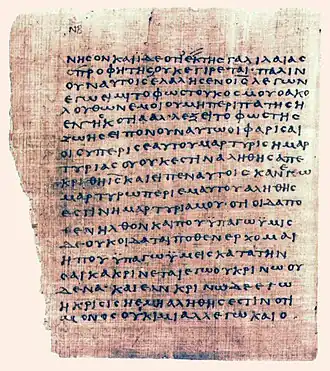 ΝΒ
ΝΗϹΟΝ ΚΑΙ ΙΔΕ ΟΤΙ ΕΚ ΤΗϹ ΓΑΛΙΛΑΙΑϹ
Ο ΠΡΟΦΗΤΗϹ ΟΥΚ ΕΓΙΡΕΤΑΙ· ΠΑΛΙΝ
ΟΥΝ ΑΥΤΟΙϹ ΕΛΑΛΗϹΕΝ Ο ΙϹ ΛΕΓΩΝ
ΕΓΩ ΕΙΜΙ ΤΟ ΦΩϹ ΤΟΥ ΚΟϹΜΟΥ Ο ΑΚΟ
ΛΟΥΘΩΝ ΕΜΟΙ ΟΥ ΜΗ ΠΕΡΙΠΑΤΗϹΗ
ΕΝ ΤΗ ϹΚΟΤΙΑ ΑΛΛ ΕΞΕΙ ΤΟ ΦΩϹ ΤΗϹ
ΖΩΗϹ ΕΙΠΟΝ ΟΥΝ ΑΥΤΩ ΟΙ ΦΑΡΙϹΑΙ
ΟΙ ϹΥ ΠΕΡΙ ϹΕΑΥΤΟΥ ΜΑΡΤΥΡΙϹ Η ΜΑΡ
ΤΥΡΙΑ ϹΟΥ ΟΥΚ ΕϹΤΙΝ ΑΛΗΘΗϹ ΑΠΕ
ΚΡΙΘΗ ΙϹ ΚΑΙ ΕΙΠΕΝ ΑΥΤΟΙϹ ΚΑΝ ΕΓΩ
ΜΑΡΤΥΡΩ ΠΕΡΙ ΕΜΑΥΤΟΥ ΑΛΗΘΗϹ
ΕϹΤΙΝ Η ΜΑΡΤΥΡΙΑ ΜΟΥ ΟΤΙ ΟΙΔΑ ΠΟ
ΘΕΝ ΗΛΘΟΝ ΚΑΙ ΠΟΥ ΥΠΑΓΩ ΥΜΙϹ
ΔΕ ΟΥΚ ΟΙΔΑΤΑΙ ΠΟΘΕΝ ΕΡΧΟΜΑΙ
Η ΠΟΥ ΥΠΑΓΩ ΥΜΕΙϹ ΚΑΤΑ ΤΗΝ
ϹΑΡΚΑ ΚΡΙΝΕΤΑΙ ΕΓΩ ΟΥ ΚΡΙΝΩ ΟΥ
ΔΕΝΑ· ΚΑΙ ΕΑΝ ΚΡΙΝΩ ΔΕ ΕΓΩ
Η ΚΡΙϹΙϹ Η ΕΜΗ ΑΛΗΘΗϹ ΕϹΤΙΝ ΟΤΙ
ΜΟΝΟϹ ΟΥΚ ΙΜΙ ΑΛΛ ΕΓΩ ΚΑΙ Ο